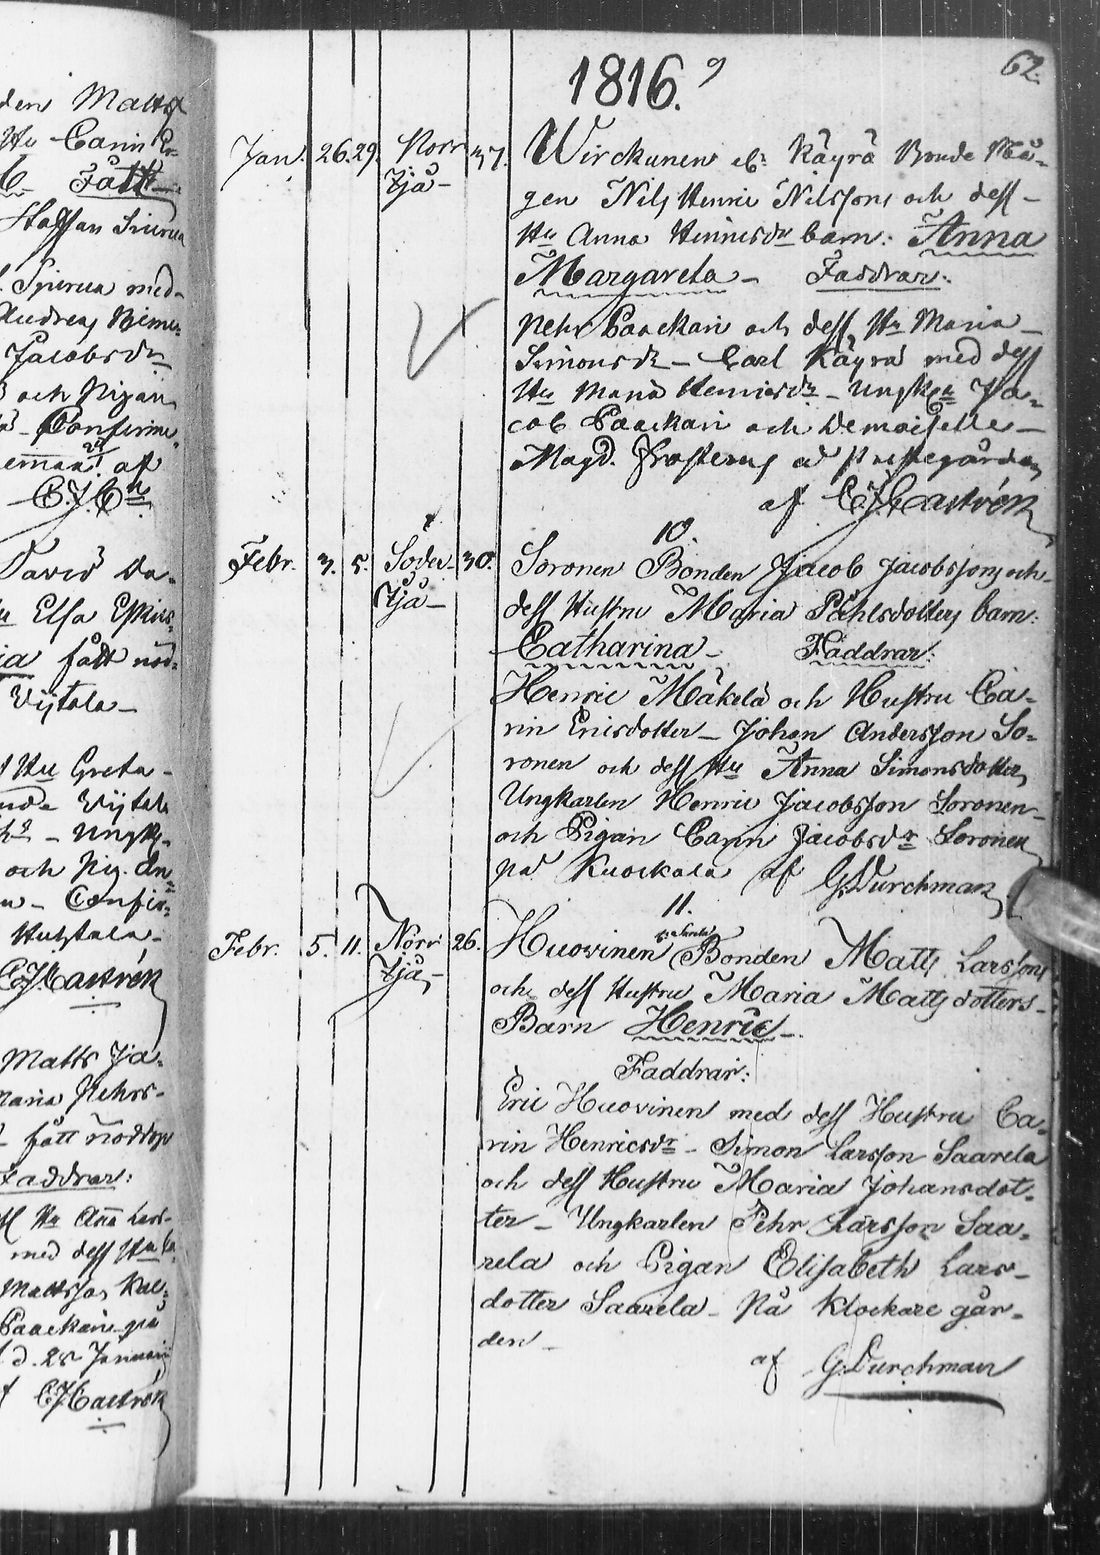 den Matts
Hu Carin
Fått
Staffan
med
Andreas
Jacobsdr
och Pigan
Confirme
af
David
Hu Elsa
fått nöd=
Vijtala
Hu Greta
Vijtala
Ungk.
och Pig. An=
Confir=
Huhtala
CJCastrén
Matts Ja=
Maria Pehrs=
fått nöddop
Faddrar:
Hu Anna Lars=
med dess Hu
Mattsson
Paackari på
d. 28 Januarii
CJCastrén
62.
1816.
9
Jan. 26. 29. Norr 37. Wirckunen el. Käyrä Bonde Må=
Jjå gen Nils Henric Nilssons och dess
Hu Anna Henricsdrs barn: Anna
Margareta Faddrar:
Pehr Paackari och dess Hu Maria
Simonsdr Carl Käyrä med dess
Hu Maria Henricsdr Ungken Ja=
cob Paackari och Demoiselle
Magd. Frosterus på Prestegården
af CJCastrén
10.
Febr. 3. 5. Söder 30. Soronen Bonden Jacob Jacobssons och
Jjå dess Hustru Maria Påhlsdotters barn:
Catharina Faddrar:
Henric Mäkelä och Hustru Ca=
rin Ericsdotter Johan Andersson So=
ronen och dess Hu Anna Simonsdotter
Ungkarlen Henric Jacobsson Soronen
och Pigan Carin Jacobsdr Soronen
på Kuockola af G. Durchman
11.
Febr. 5. 11. Norr 26. Huovinen Bonden Matts Larssons
Jjå och dess Hustru Maria Mattsdotters
Barn Henric
Faddrar:
Eric Huovinen med dess Hustru Ca=
rin Henricsdr Simon Larsson Saarela
och dess Hustru Maria Johansdot=
ter Ungkarlen Pehr Larsson Saa=
rela och Pigan Elisabeth Lars=
dotter Saarela På Klockare går=
den
af G. Durchman